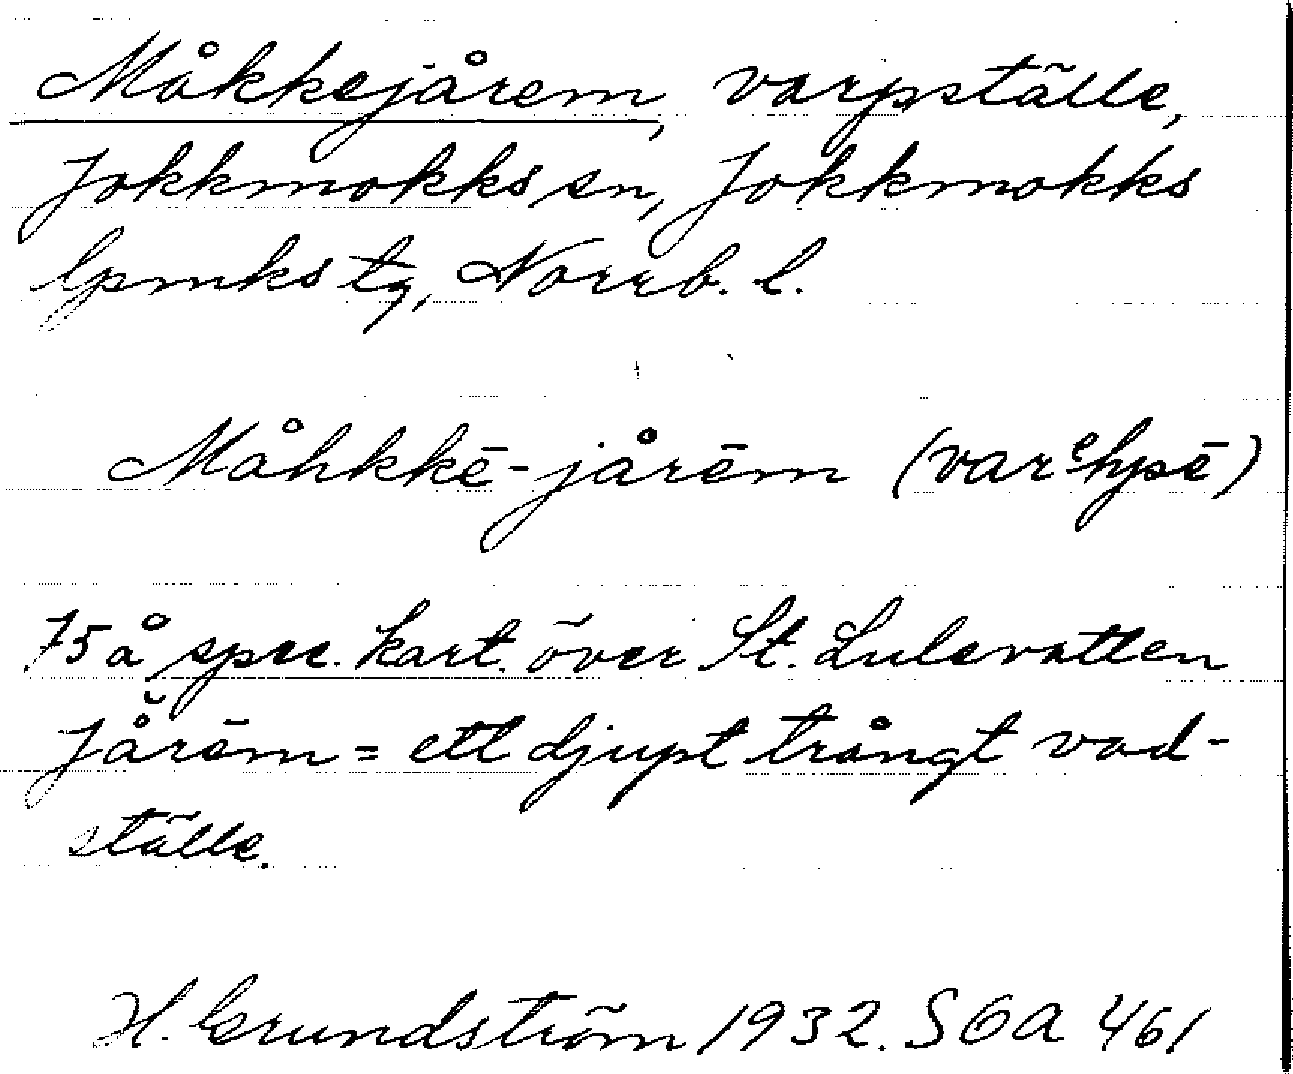 Måkkejårem, varpställe,
Jokkmokks sn, Jokkmokks
lpmks tg, Norrb. l.
Måhkkē-jårēm (varᵉhpsē)
75 å spec. kart. över St. Lulevatten
Jå̆rēm = ett djupt trångt vad-
ställe.
H. Grundström 1932. SOA 461